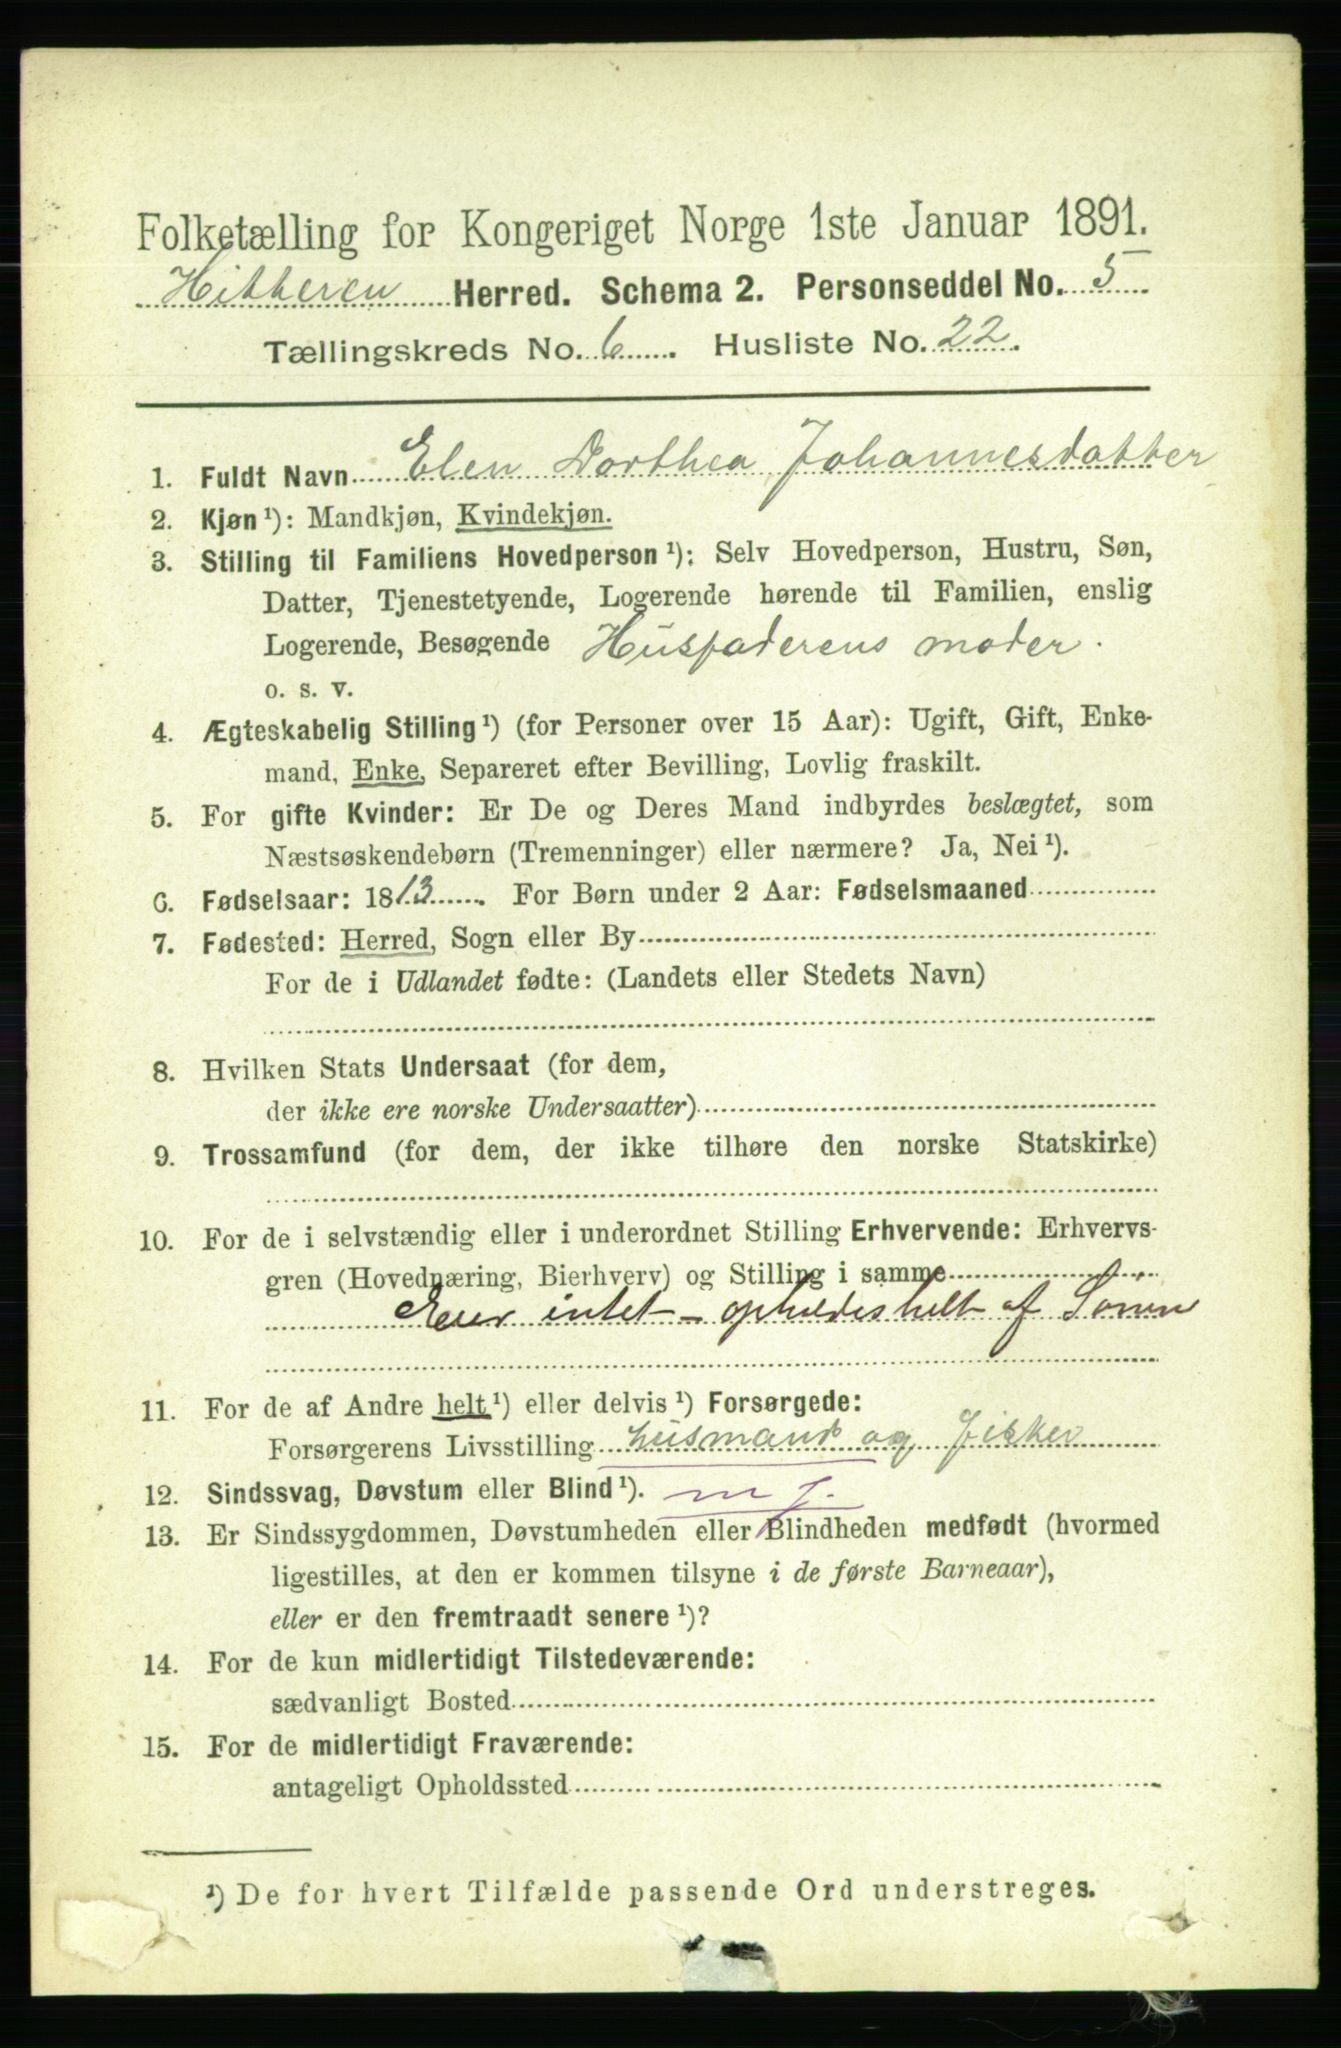 Folketælling for Kongeriget Norge 1ste Januar 1891.
Hitteren Herred. Schema 2. Personseddel No. 5
Tællingskreds No. 6. Husliste No. 22.
1. Fuldt Navn Elen Dorthea Johannesdatter
2. Kjøn ¹): Mandkjøn, Kvindekjøn.
3. Stilling til Familiens Hovedperson ¹): Selv Hovedperson, Hustru, Søn,
Datter, Tjenestetyende, Logerende hørende til Familien, enslig
Logerende, Besøgende Husfaderens moder.
o. s. v.
4. Ægteskabelig Stilling ¹) (for Personer over 15 Aar): Ugift, Gift, Enke-
mand, Enke, Separeret efter Bevilling, Lovlig fraskilt.
5. For gifte Kvinder: Er De og Deres Mand indbyrdes beslægtet, som
Næstsøskendebørn (Tremenninger) eller nærmere? Ja, Nei ¹).
6. Fødselsaar: 1813. For Børn under 2 Aar: Fødselsmaaned
7. Fødested: Herred, Sogn eller By
For de i Udlandet fødte: (Landets eller Stedets Navn)
8. Hvilken Stats Undersaat (for dem,
der ikke ere norske Undersaatter)
9. Trossamfund (for dem, der ikke tilhøre den norske Statskirke)
10. For de i selvstændig eller i underordnet Stilling Erhvervende: Erhvervs-
gren (Hovednæring, Bierhverv) og Stilling i samme
Eier intet - opholdes helt af Sønnen
11. For de af Andre helt ¹) eller delvis ¹) Forsørgede:
Forsørgerens Livsstilling husmand og Fisker
12. Sindssvag, Døvstum eller Blind ¹).
13. Er Sindssygdommen, Døvstumheden eller Blindheden medfødt (hvormed
ligestilles, at den er kommen tilsyne i de første Barneaar),
eller er den fremtraadt senere ¹)?
14. For de kun midlertidigt Tilstedeværende:
sædvanligt Bosted
15. For de midlertidigt Fraværende:
antageligt Opholdssted
¹) De for hvert Tilfælde passende Ord understreges.